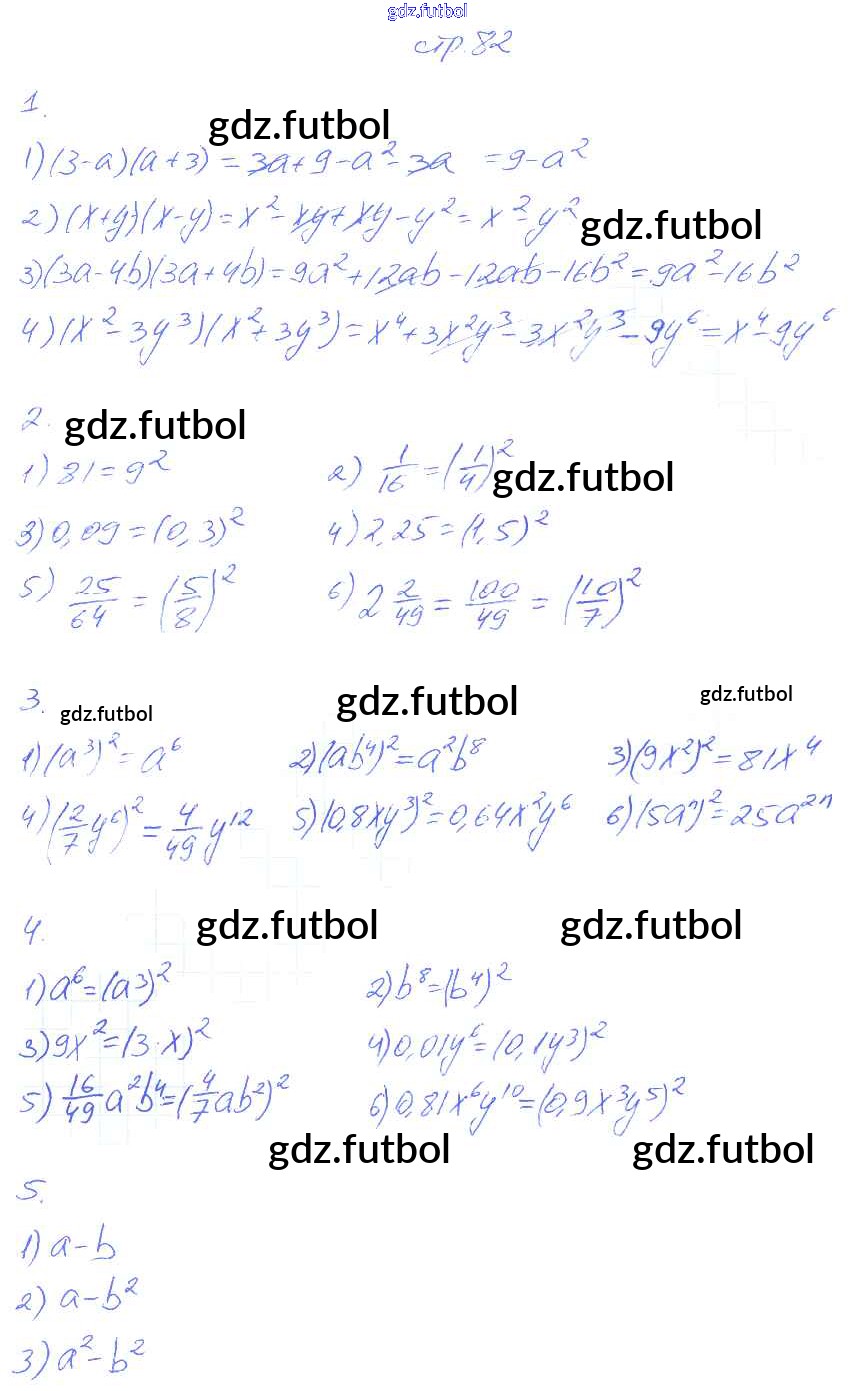 gdz.futbol
стр. 82
1.
gdz.futbol
1) (3-a)(a+3) = 3a+9-a²-3a = 9-a²
2) (x+y)(x-y) = x²-xy+xy-y² = x²-y²
gdz.futbol
3) (3a-4b)(3a+4b) = 9a²+12ab-12ab-16b² = 9a²-16b²
4) (x²-3y³)(x²+3y³) = x⁴+3x²y³-3x²y³-9y⁶ = x⁴-9y⁶
2. gdz.futbol
1) 81 = 9² 2) 1/16 = (1/4)² gdz.futbol
3) 0,09 = (0,3)² 4) 2,25 = (1,5)²
5) 25/64 = (5/8)² 6) 2 2/49 = 100/49 = (10/7)²
3. gdz.futbol gdz.futbol gdz.futbol
1) (a³)² = a⁶ 2) (ab⁴)² = a²b⁸ 3) (9x²)² = 81x⁴
4) (2/7 y⁶)² = 4/49 y¹² 5) (0,8xy³)² = 0,64x²y⁶ 6) (5aⁿ)² = 25a²ⁿ
4. gdz.futbol gdz.futbol
1) a⁶ = (a³)² 2) b⁸ = (b⁴)²
3) 9x² = (3·x)² 4) 0,01y⁶ = (0,1y³)²
5) 16/49 a²b⁴ = (4/7 ab²)² 6) 0,81x⁶y¹⁰ = (0,9x³y⁵)²
gdz.futbol gdz.futbol
5.
1) a-b
2) a-b²
3) a²-b²